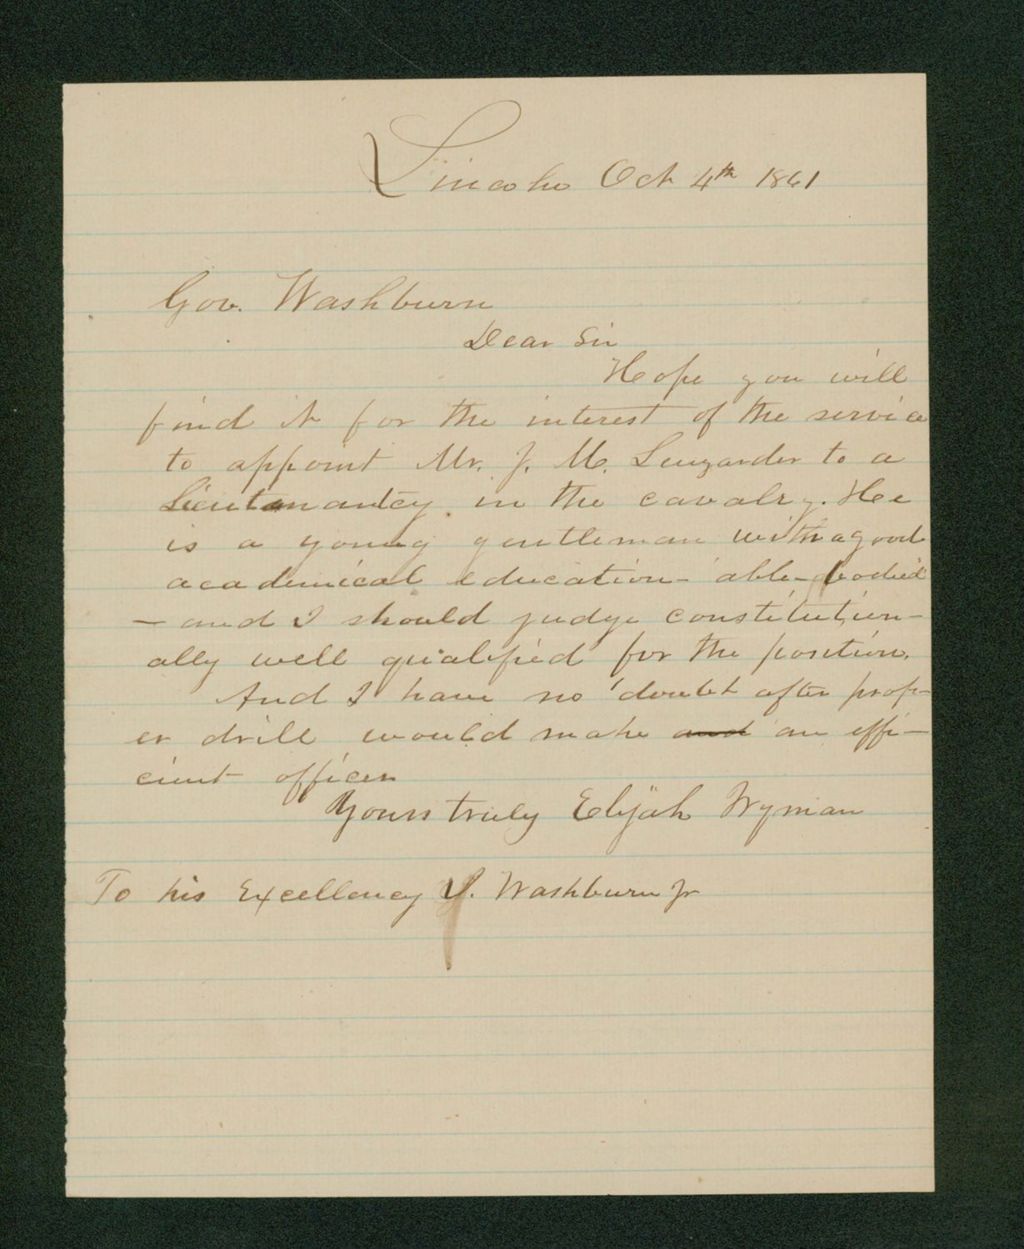 Lincoln Oct 4th 1861
Gov. Washburn
Dear Sir
Hope you will
find it for the interest of the service
to appoint Mr. J. M. to a
Lieutenantcy in the cavalry. He
is a young gentleman with a good
academical education - able-bodied
- and I should judge constitution-
ally well qualified for the position.
And I have no doubt after prop-
er drill would make and an effi-
cient officer
Yours truly Elijah Wyman
To his Excellency I. Washburn Jr